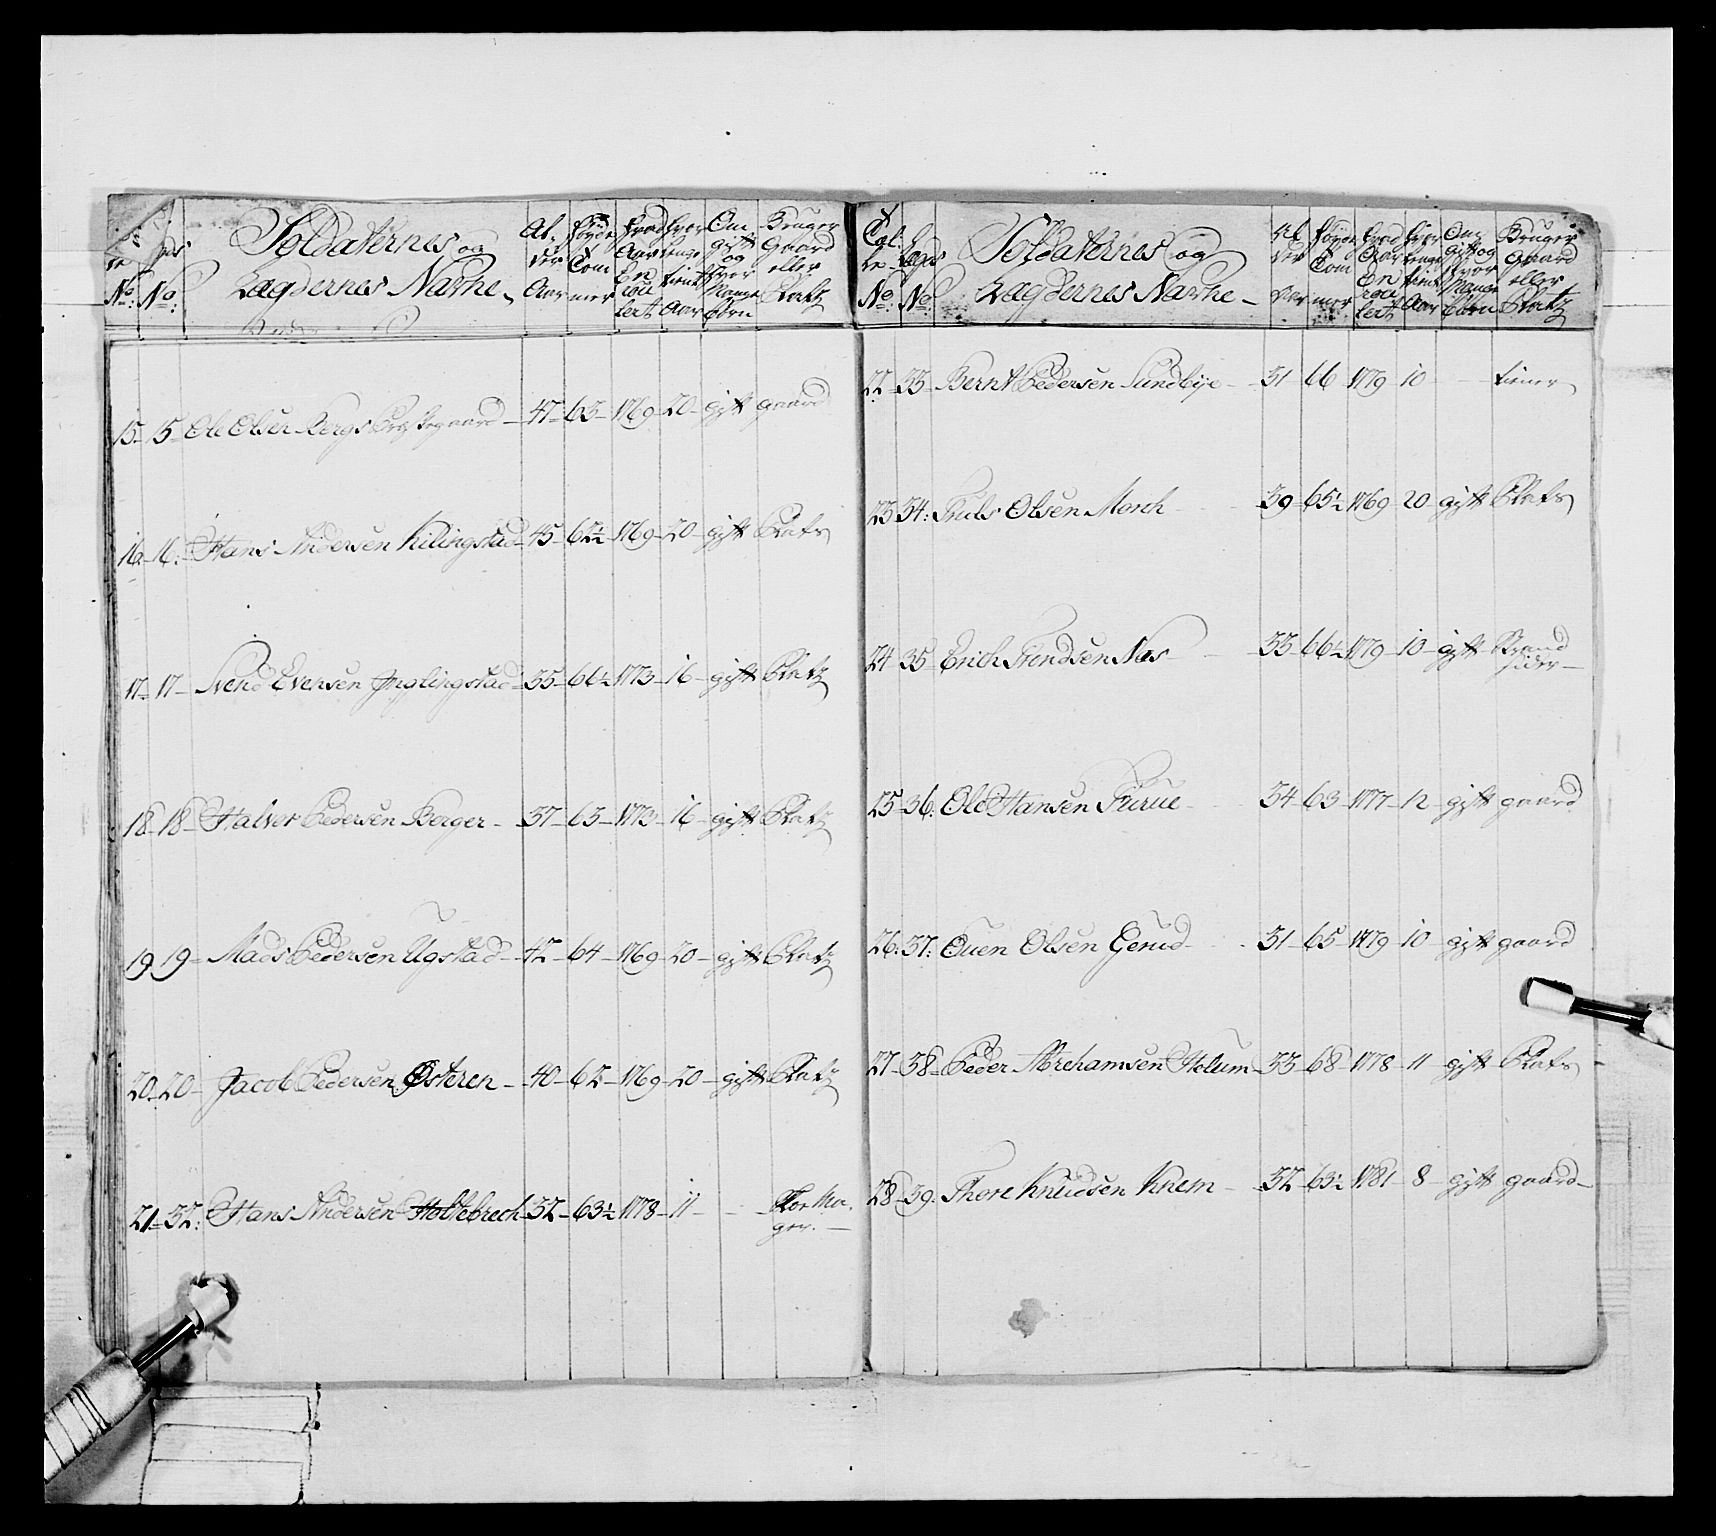 No: No: Soldaternes og Lægdernes Nafne Al der Aar Høyde Tom mer Hvad Aar En rou lert Hvor lenge tient Aar Om gift og Hvor Mange Børn Bruger Gaard eller Platz
15 15 Ole Olsen Bergs 47 63 1769 20 gift gaard
16 16 Hans Andersen Kilingstad 45 62½ 1769 20 gift Plats
17 17 Svend Evensen Inglingstad 35 66½ 1773 16 gift Platz
18 18 Halver Pedersen Berger 37 63 1773 16 gift Platz
19 19 Mads Pedersen Ugstad 42 64 1769 20 gift Platz
20 20 Jacob Pedersen Østeren 40 62 1769 20 gift Platz
21 32 Hans Andersen Holtebrech 32 63½ 1778 11 Skoe Ma
ger
No: No: Soldaternes og Lægdernes Nafne Al der Aar Høyde Tom mer Hvad Aar En rou lert Hvor lenge tient Aar Om gift og Hvor Mange Børn Bruger gaard eller Platz
22 33 Bernt Pedersen Sundbye 31 66 1779 10 tiener
23 34 Truls Olsen Morch 39 65½ 1769 20 gift Plats
24 35 Erich Trondsen Næs 33 66½ 1779 10 gift Strand
sider
25 36 Ole Hansen Furue 34 63 1777 12 gift gaard
26 37 Ouen Olsen Gerud 31 65 1779 10 gift gaard
27 38 Peder Abrehamsen Holum 33 68 1778 11 gift Plats
28 39 Thore Knudsen Knem 32 63½ 1781 8 gift gaard